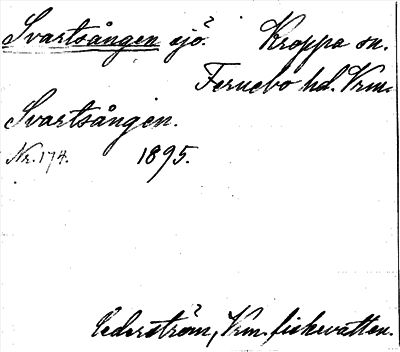 Svartsången sjö. Kroppa sn.
Fernebo hd. Vrm.
Svartsången.
Nr. 174. 1895.
Cederström, Vrm. fiskevatten.